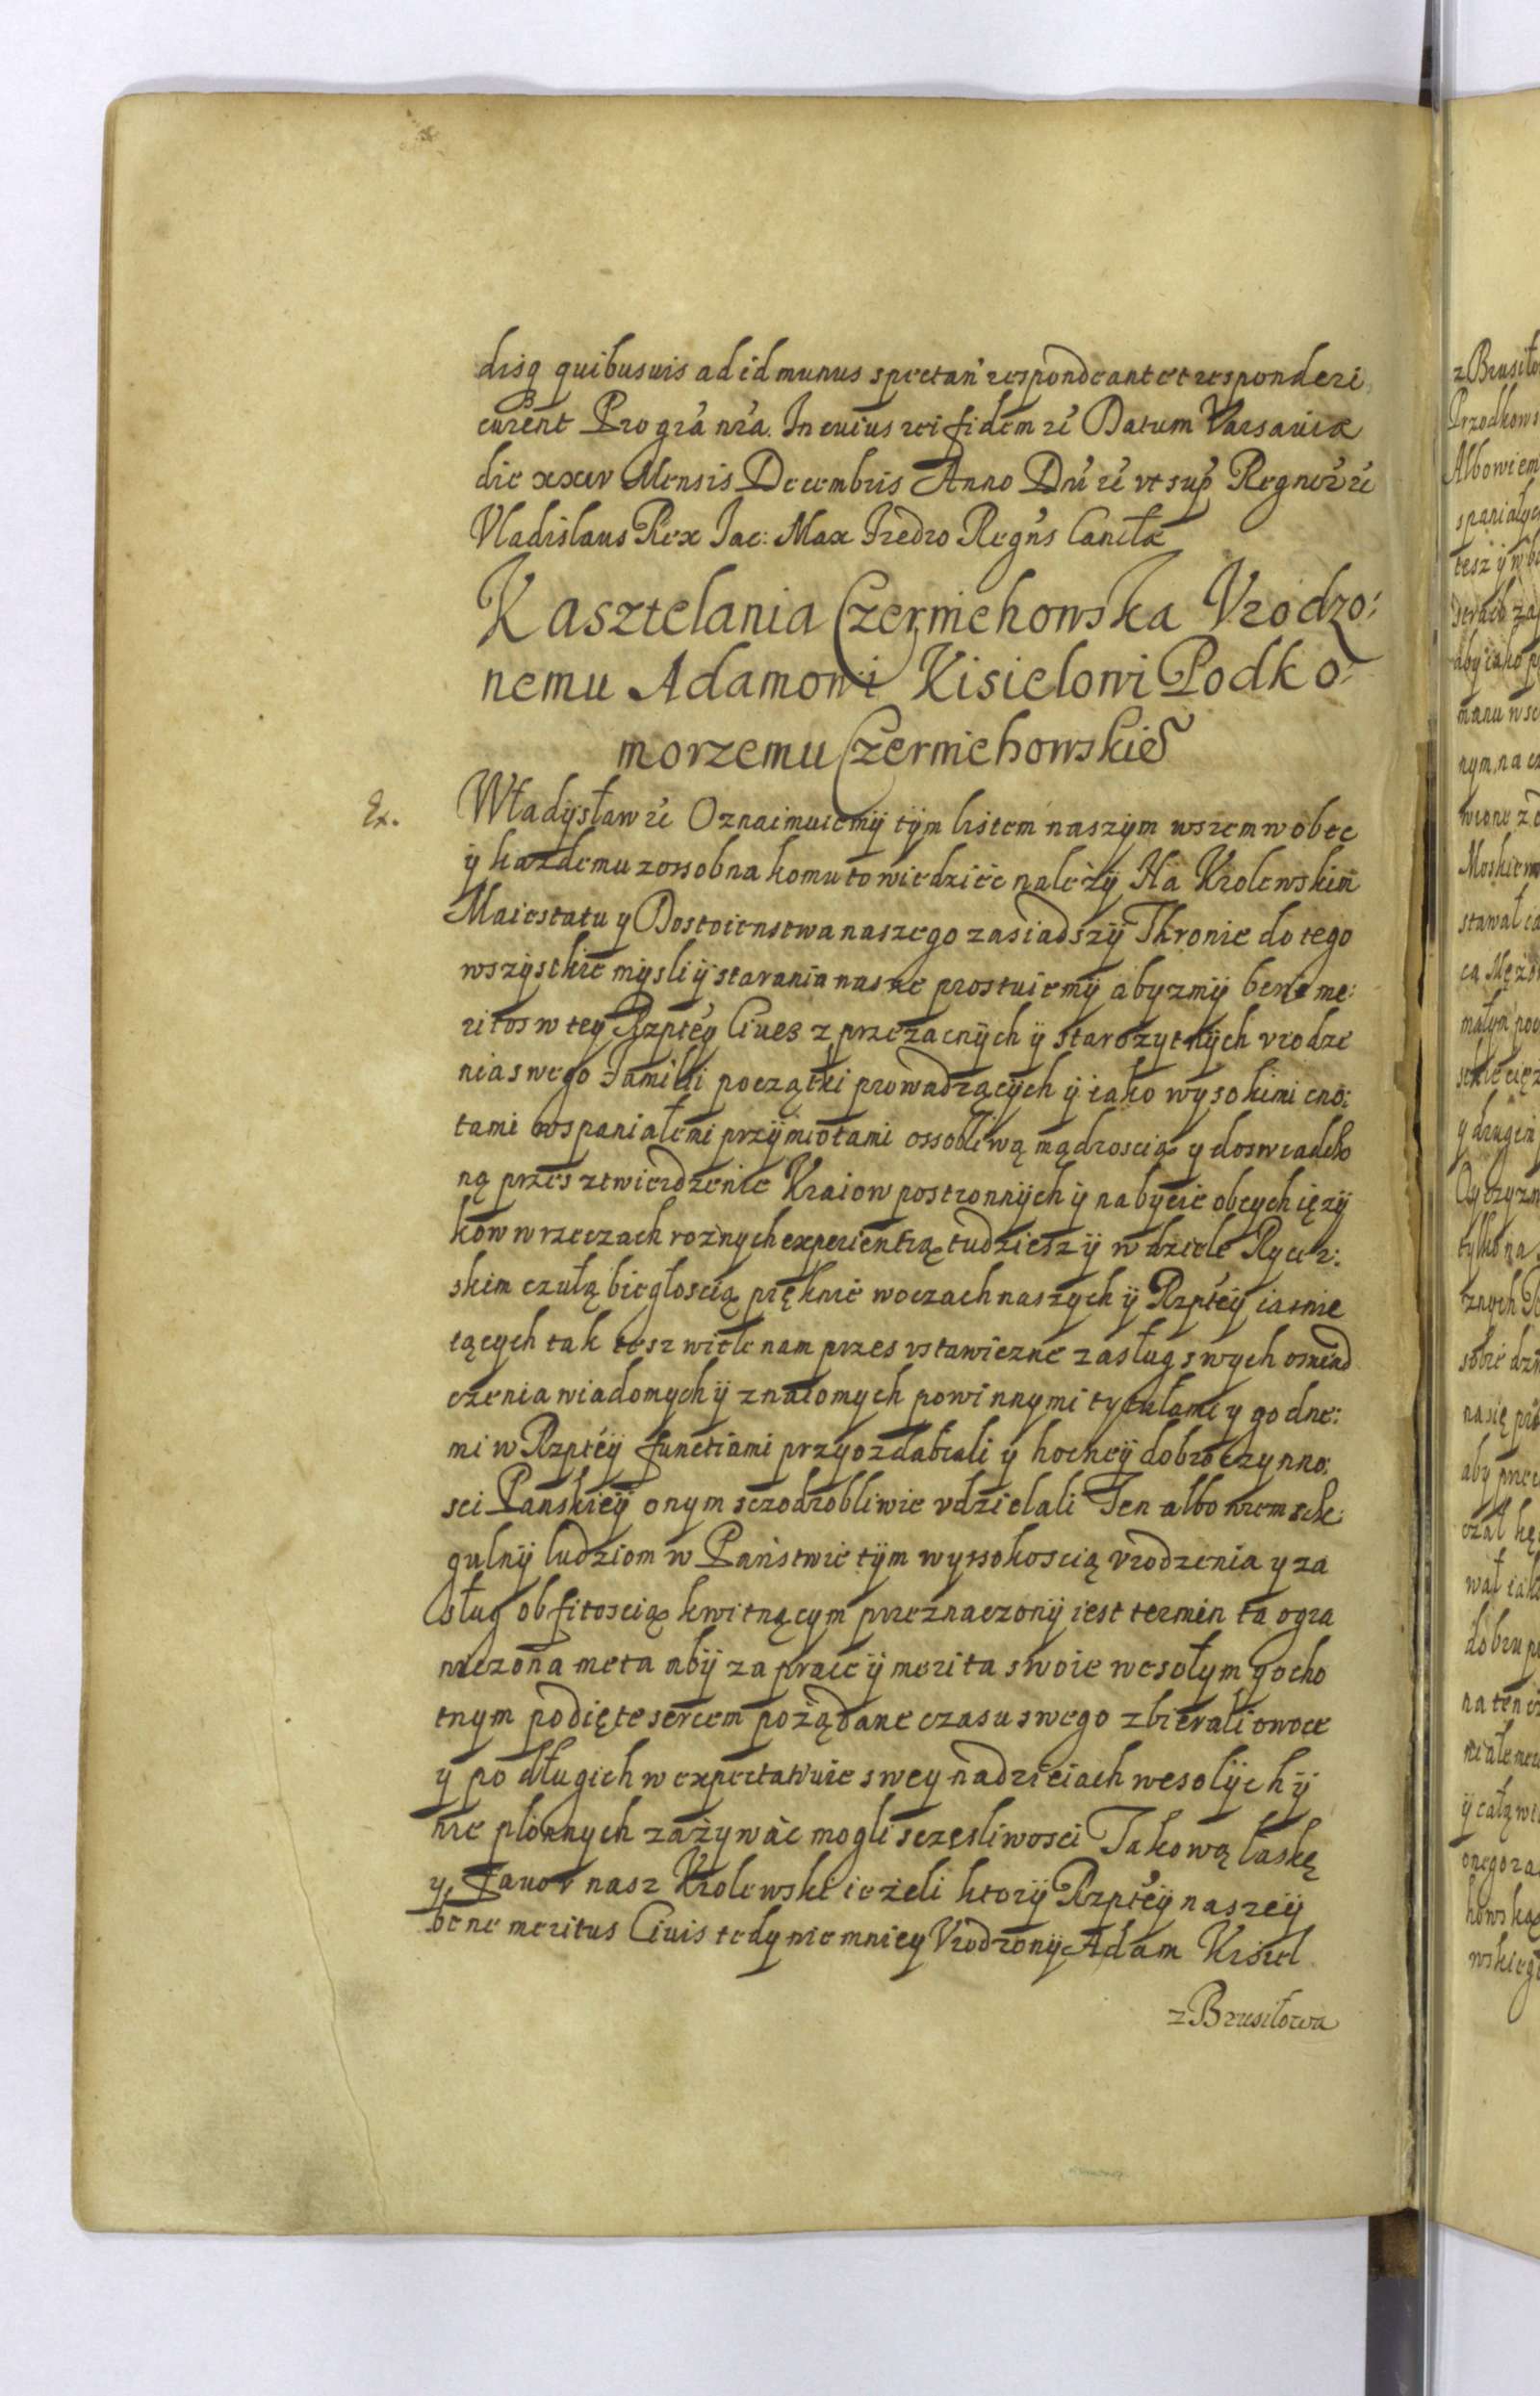 disq quibusuis ad id munus spectan respondeant et responderi
curent Pro gra nra. In cuius rei fidem rc Datum Varsauiæ
die xxiv Mensis Decembris Anno Dni rc vt sup Regnor rc
Vladislaus Rex Jac: Max Fredro Regns Canclæ
Kasztelania Czerniehowska Vrodzo:
nemu Adamowi Kisielowi Podko:
morzemu Czerniehowskie
Ex. Władysław rc Oznaimuiemÿ tÿm listem naszÿm wszem wobec
ÿ kazdemu zossobna komu to wiedzieć należÿ Na Krolewskim
Maiestatu y Dostoienstwa naszego zasiadszÿ Thronie do tego
wszÿstkie mÿsli ÿ starania nasze prostuiemÿ abyzmÿ bene me:
ritos w tey Rzptey Ciues z przezacnÿch ÿ starozytnÿch vrodze
nia swego Familii początki prowadzącÿch ÿ iako wysokimi cno:
tami wspaniałemi przÿmiotami ossobliwą mądroscią y doswiadczo
ną przes ztwierdzenie Kraiow postronnÿch ÿ nabÿcie obcych ięzÿ
kow w rzeczach roznych experientią tudziesz ÿ w dziele Rycer:
skim czułą biegłoscią pięknie w oczach naszych ÿ Rzptey iasnie
iących tak tesz wiele nam przes vstawiczne zasług swych oswiad
czenia wiadomych ÿ znaiomych powinnymi tytułami y godne:
mi w Rzptey functiami przyozdabiali y hoyneÿ dobroczynno:
sci Panskieÿ onym sczodrobliwie vdzielali Ten albowiem scze:
gulnÿ ludziom w Państwie tÿm wyssokoscią vrodzenia y za
sług obfitoscią kwitnącym przeznaczonÿ iest termin ta ogra
niczona meta abÿ za prace ÿ merita swoie wesołym y ocho
tnym podięte sercem pożądane czasu swego zbierali owoce
y po długich w expectatiuie swey nadzieiach wesolÿch ÿ
nie płonnych zażywać mogli sczesliwosci Takową łaskę
y Fauor nasz Krolewski ieżeli ktorÿ Rzpteÿ naszeÿ
bene meritus Ciuis tedy nie mniey Vrodzonÿ Adam Kisiel
z Brusiłowa